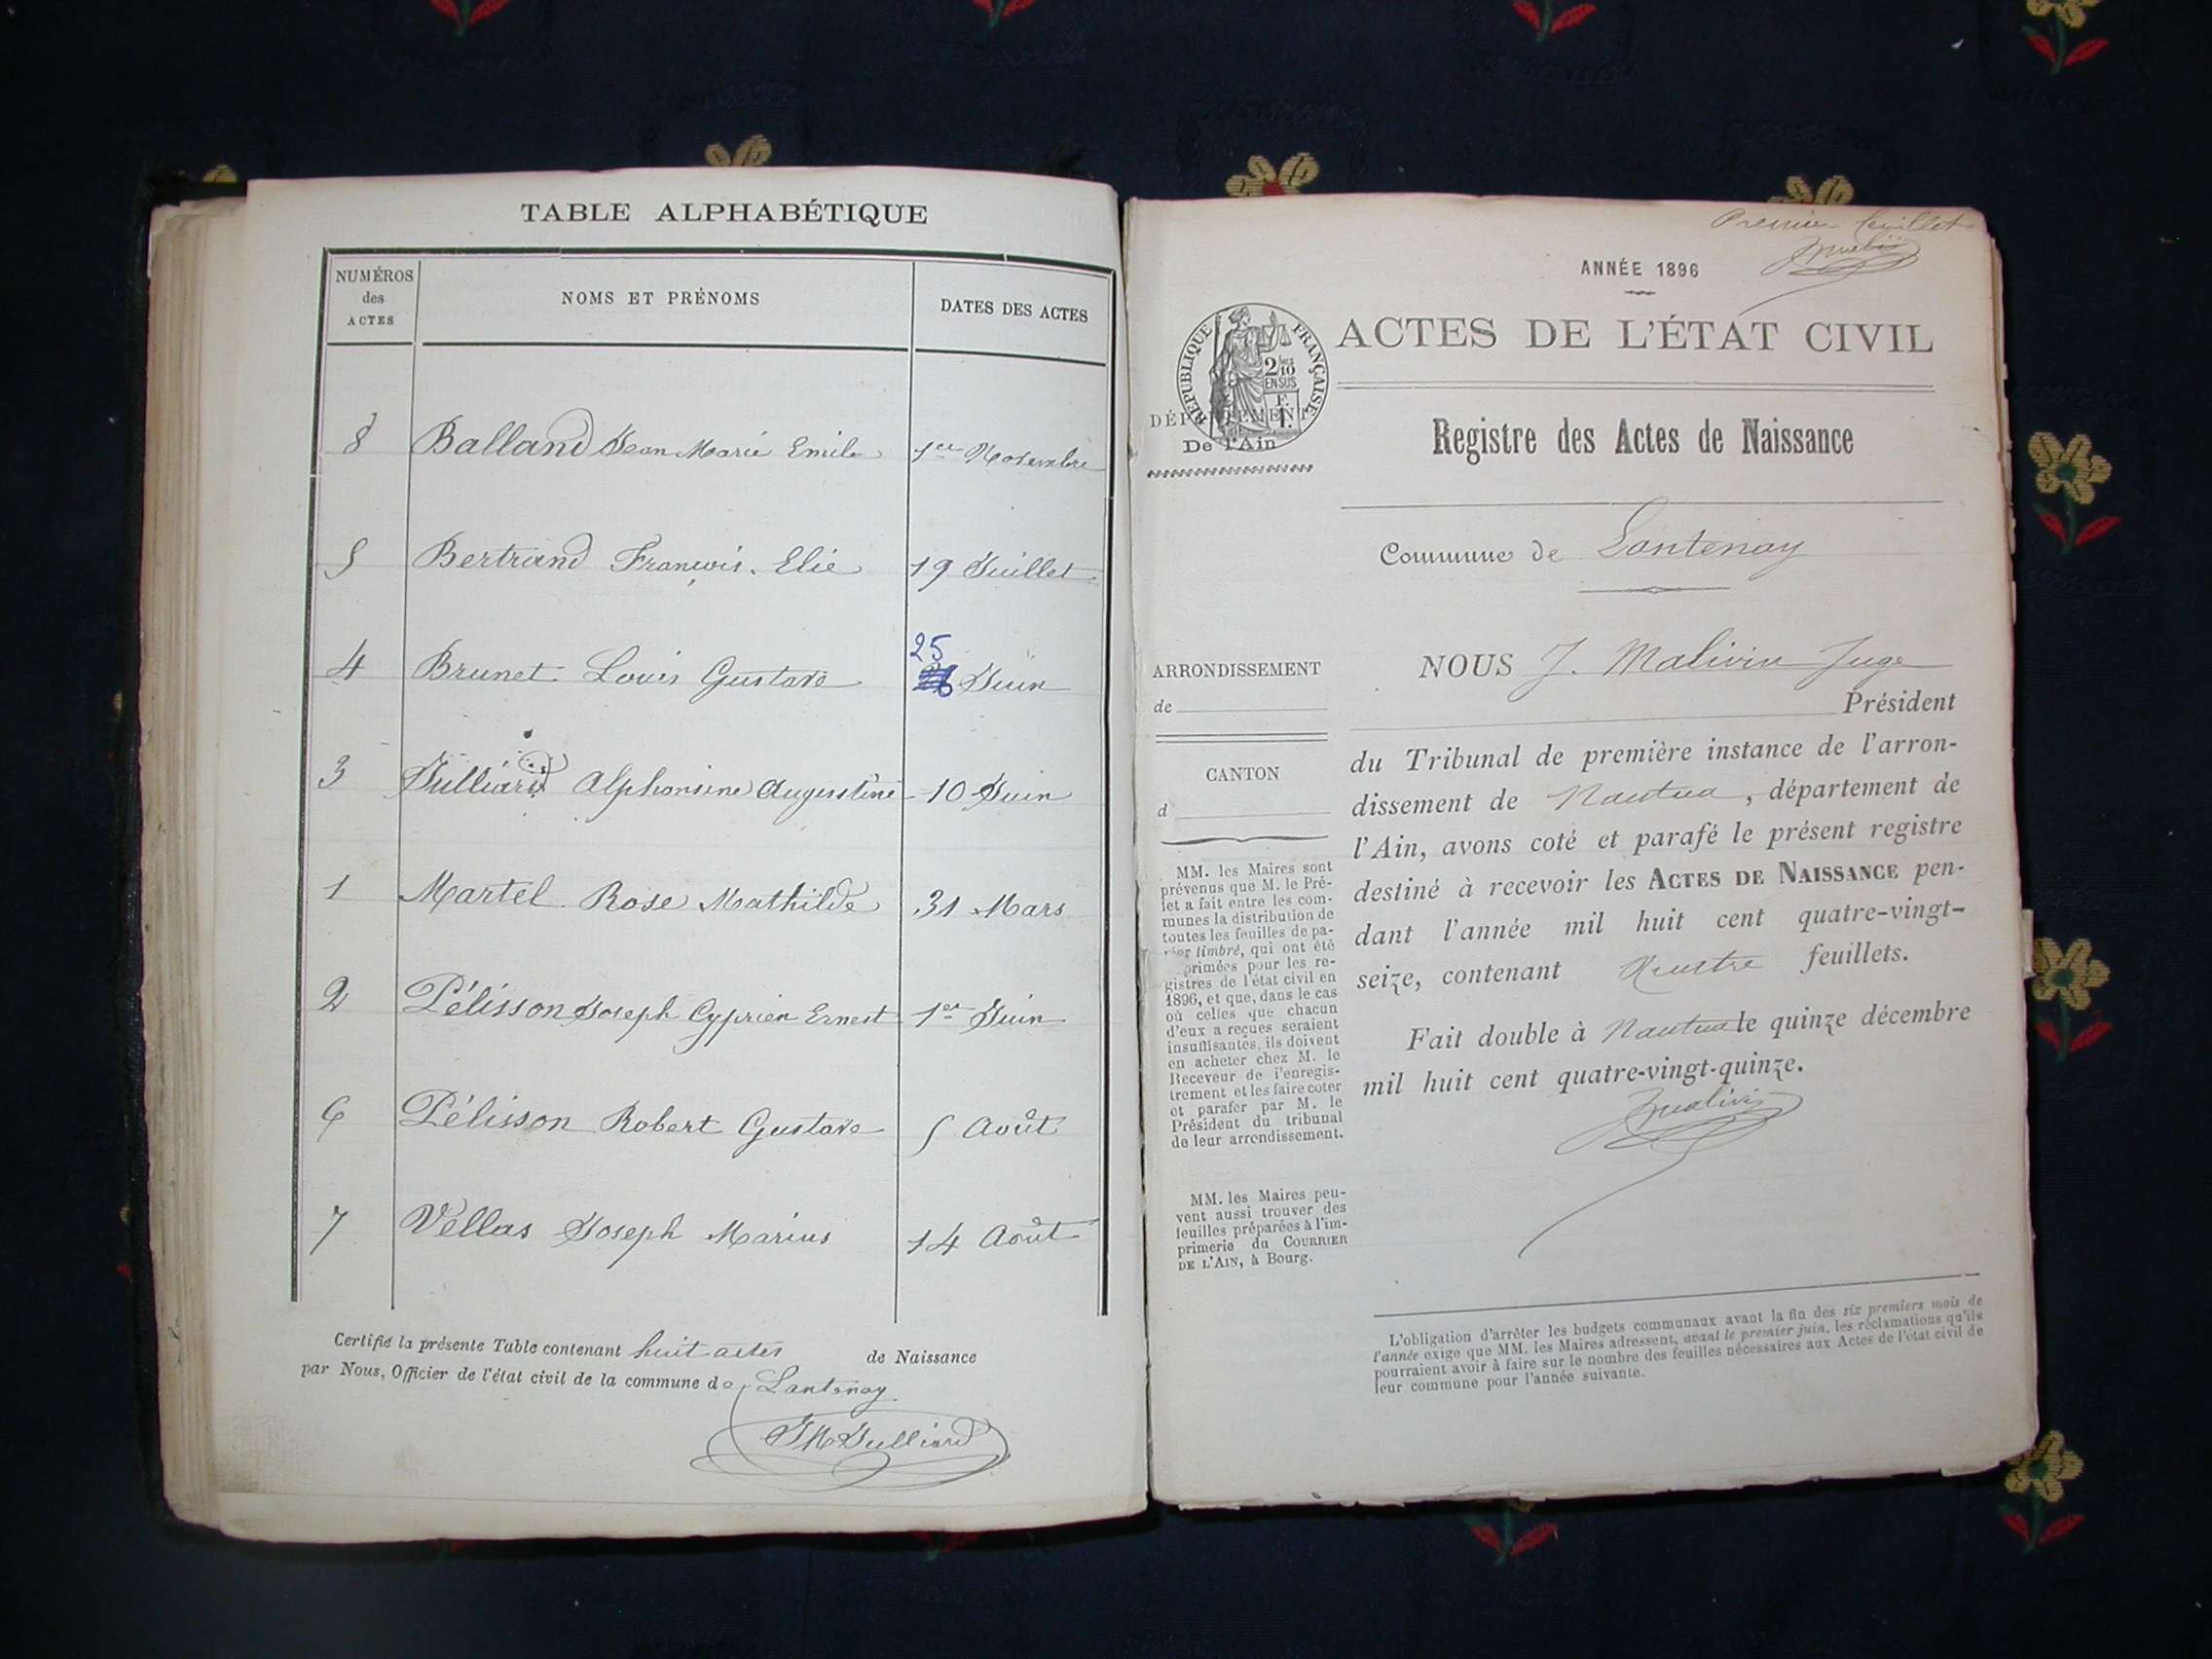 TABLE ALPHABÉTIQUE
NUMÉROS des ACTES
NOMS ET PRÉNOMS
DATES DES ACTES
8 Balland Jean Marie Emile 1er Novembre
5 Bertrand François Elie 19 Juillet
25
4 Brunet Louis Gustave Juin
3 Julliard Alphonsine Augustine 10 Juin
1 Martel Rose Mathilde 31 Mars
2 Pélisson Joseph Cyprien Ernest 1er Juin
6 Pélisson Robert Gustave 5 Août
7 Vellas Joseph Marius 14 Août
Certifié la présente Table contenant huit actes de Naissance
par Nous, Officier de l'état civil de la commune de Lantenay
JM Julliard
Premier feuillet
ANNÉE 1896
ACTES DE L'ÉTAT CIVIL
RÉPUBLIQUE FRANÇAISE
2/10 EN SUS
F. 1.
DÉPARTEMENT
De l'Ain
Registre des Actes de Naissance
Commune de Lantenay
ARRONDISSEMENT
de
CANTON
d
MM. les Maires sont
prévenus que M. le Pré-
fet a fait entre les com-
munes la distribution de
toutes les feuilles de pa-
pier timbré, qui ont été
primées pour les re-
gistres de l'état civil en
1896, et que, dans le cas
où celles que chacun
d'eux a reçues seraient
insuffisantes, ils doivent
en acheter chez M. le
Receveur de l'enregis-
trement et les faire coter
et parafer par M. le
Président du tribunal
de leur arrondissement.
MM. les Maires peu-
vent aussi trouver des
feuilles préparées à l'im-
primerie du COURRIER
DE L'AIN, à Bourg.
NOUS J. Malivin Juge
Président
du Tribunal de première instance de l'arron-
dissement de Nantua, département de
l'Ain, avons coté et parafé le présent registre
destiné à recevoir les ACTES DE NAISSANCE pen-
dant l'année mil huit cent quatre-vingt-
seize, contenant feuillets.
Fait double à Nantua le quinze décembre
mil huit cent quatre-vingt-quinze.
L'obligation d'arrêter les budgets communaux avant la fin des six premiers mois de
l'année exige que MM. les Maires adressent, avant le premier juin, les réclamations qu'ils
pourraient avoir à faire sur le nombre des feuilles nécessaires aux Actes de l'état civil de
leur commune pour l'année suivante.